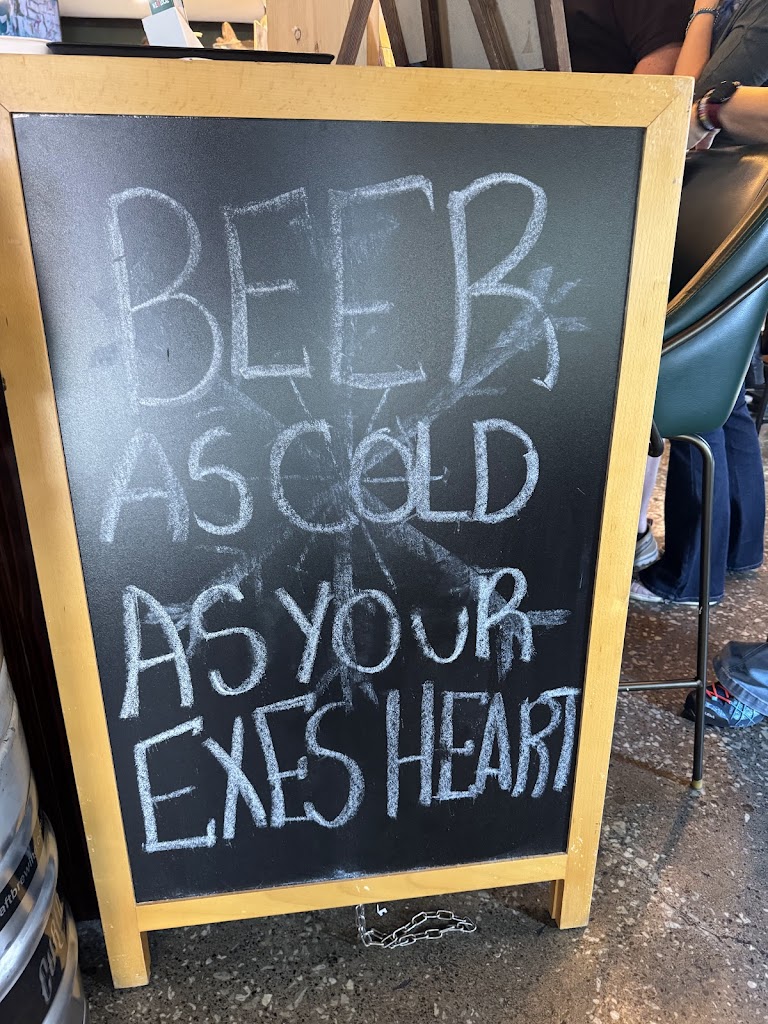 BEER
AS COLD
AS YOUR
EXES HEART